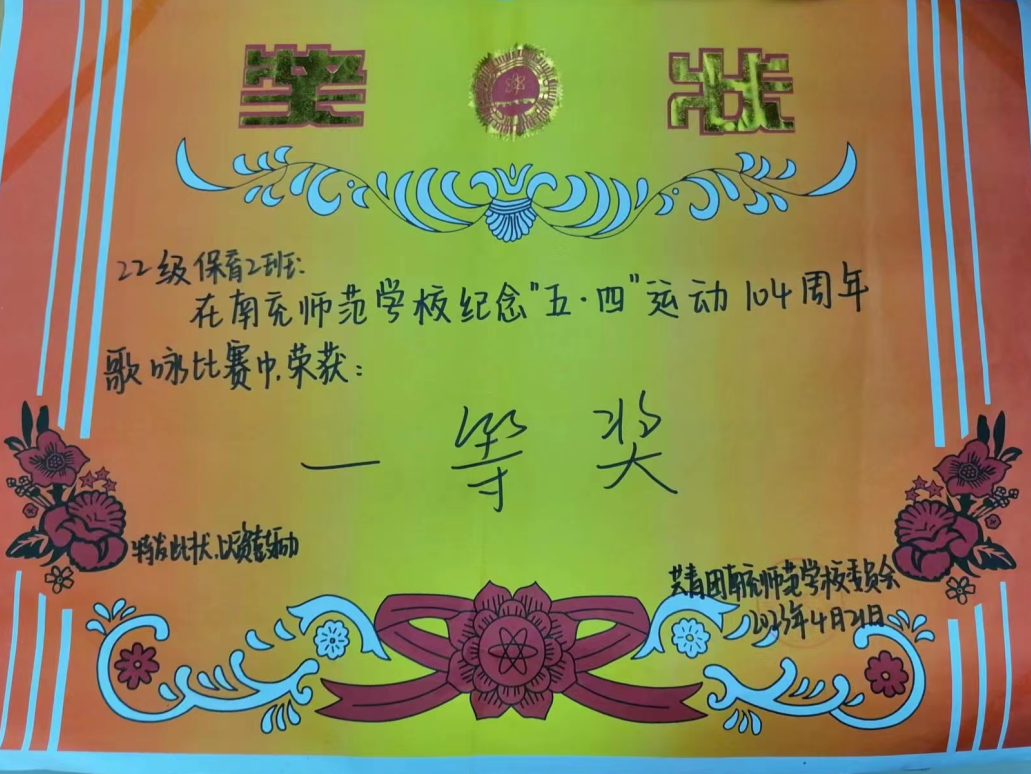 奖状
22级保育2班:
在南充师范学校纪念"五·四"运动104周年
歌咏比赛中,荣获:
一等奖
特发此状,以资鼓励
共青团南充师范学校委员会
2023年4月21日